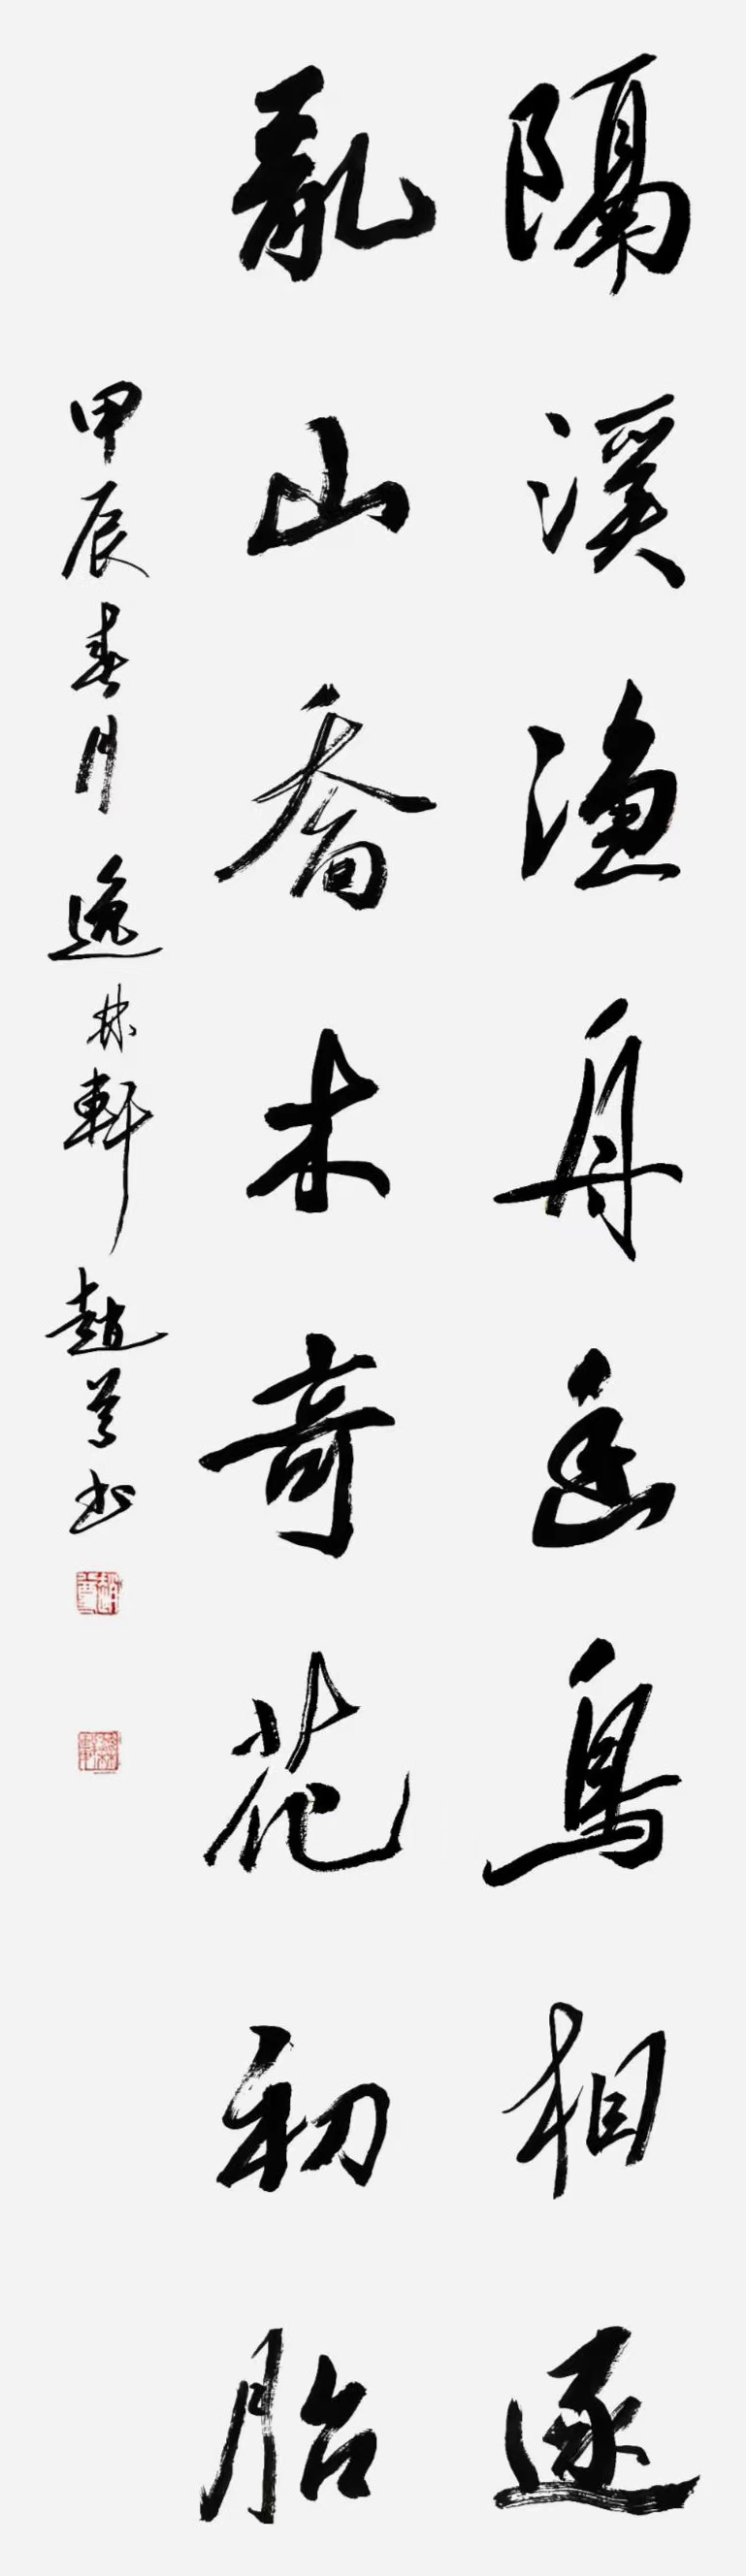 隔溪漁舟幽鳥相逐
亂山喬木奇花初胎
甲辰春月逸林軒趙書